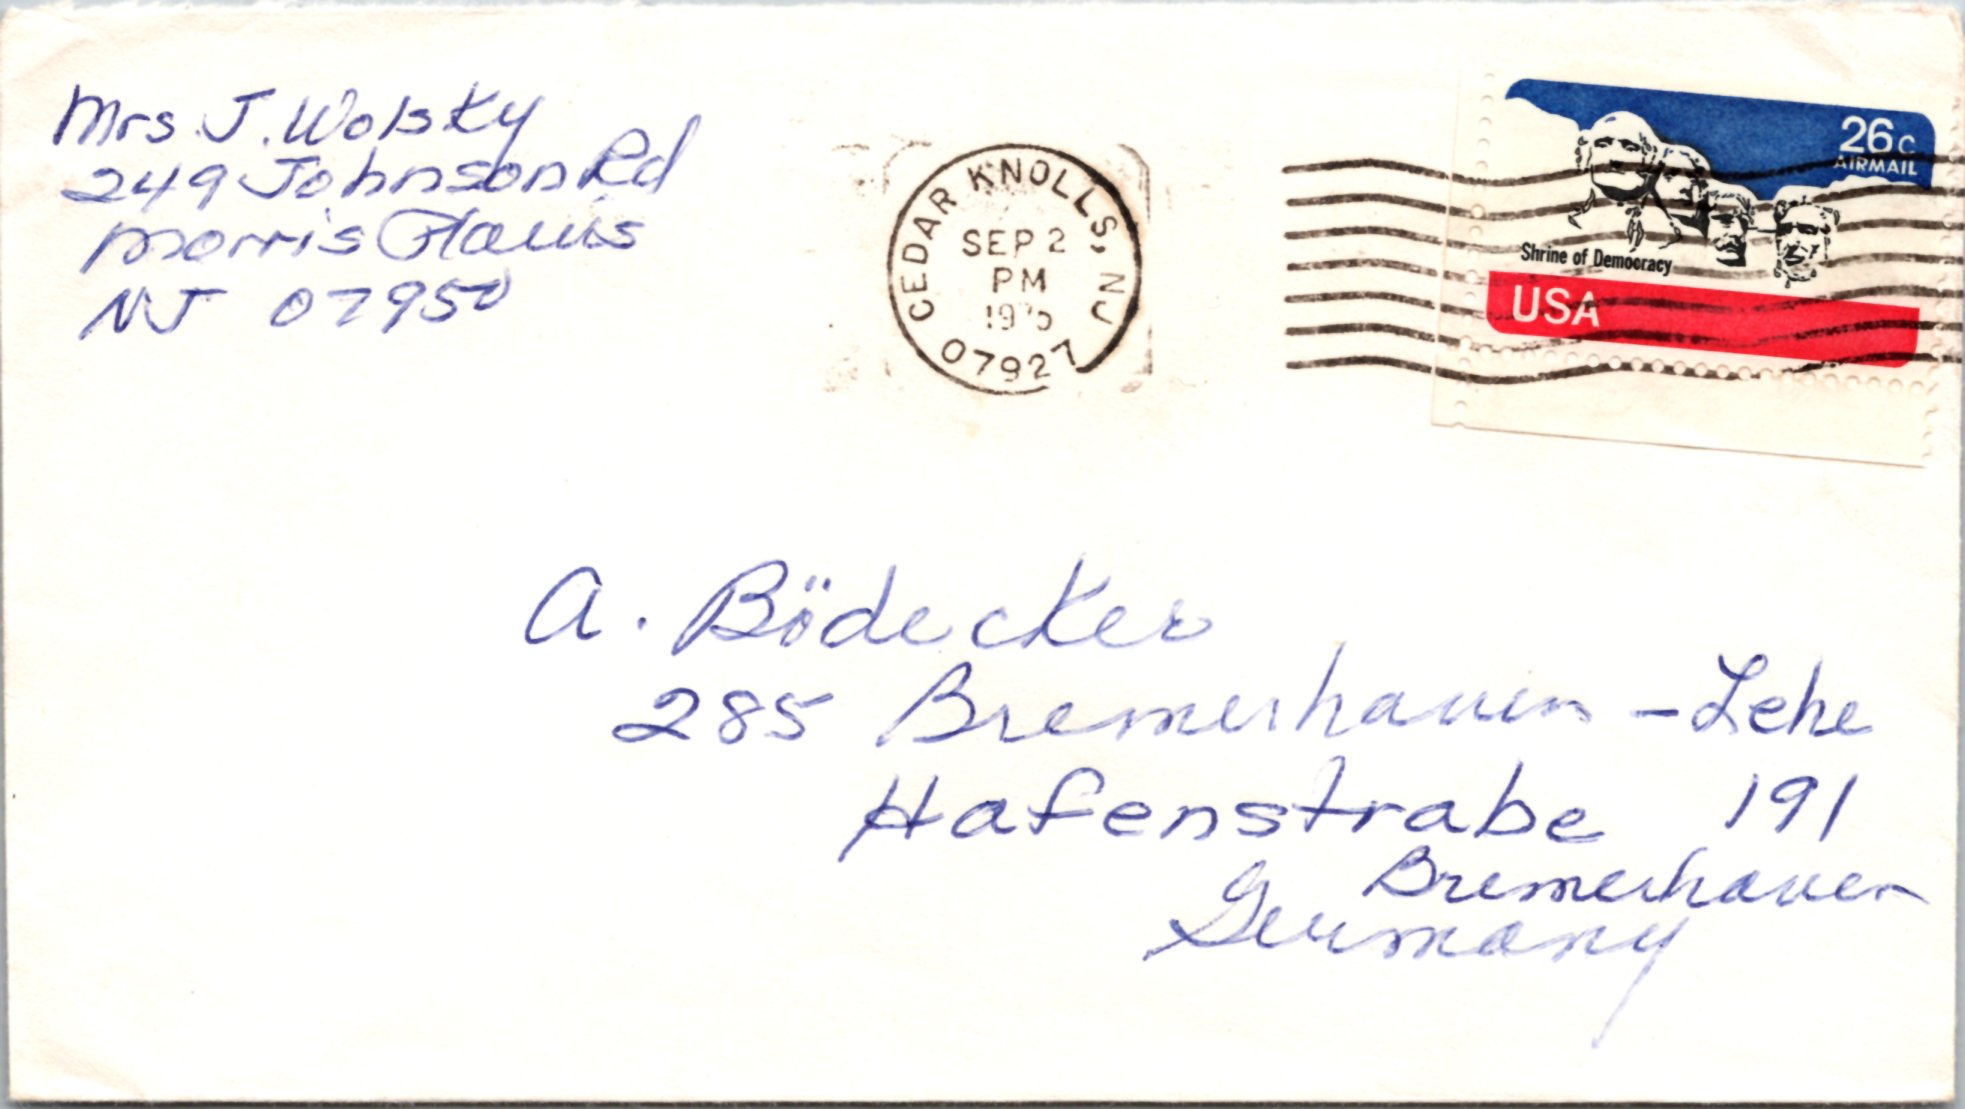 Mrs. J. Wolsky
249 Johnson Rd
Morris Plains
NJ 07950
CEDAR KNOLLS, NJ
SEP 2
PM
07927
26c
AIRMAIL
Shrine of Democracy
USA
A. Bödecker
285 Bremerhaven - Lehe
Hafenstrabe 191
Bremerhaven
Germany